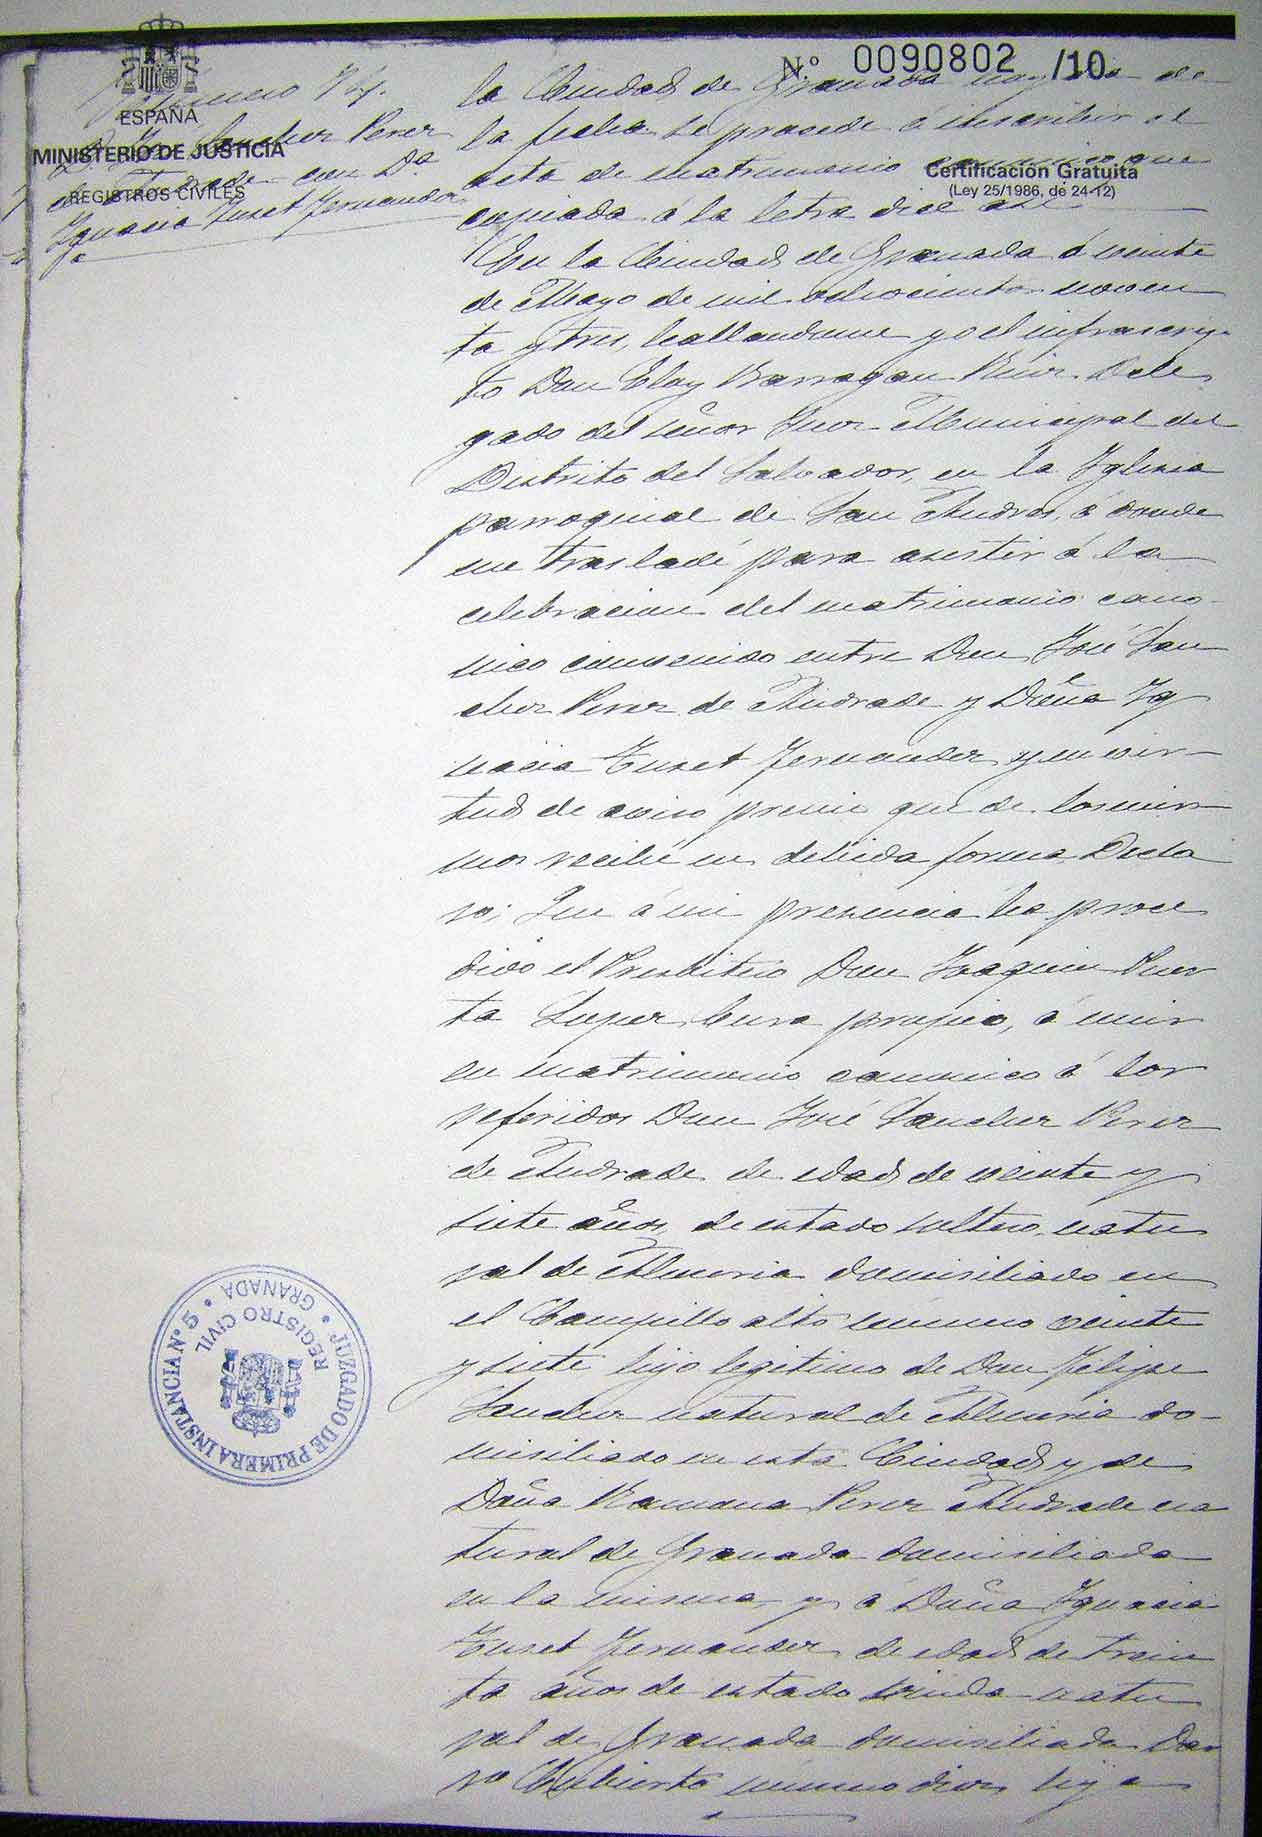 Nº 0090802 /10
ESPAÑA
MINISTERIO DE JUSTICIA
REGISTROS CIVILES
Certificación Gratuita
(Ley 25/1986, de 24-12)
Numero
D. José Sanchez Perez
de Andrade con Dª
Ignacia Tuset Fernandez
la Ciudad de Granada hoy dia de
la fecha se procede á inscribir el
acta de matrimonio canonico que
copiada á la letra dice asi
En la Ciudad de Granada á veinte
de Mayo de mil ochocientos noven
ta y tres, hallandome yo el infrascrip
to Don Eloy Barragan Ruiz Dele
gado del señor Juez Municipal del
Distrito del Salvador, en la Yglesia
parroquial de San Andres, á donde
me trasladé para asistir á la
celebracion del matrimonio cano
nico convenido entre Don José San
chez Perez de Andrade y Doña Yg
nacia Tuset Fernandez y en vir
tud de aviso previo que de los mis
mos recibi en debida forma Decla
ro: Que á mi presencia ha proce
dido el Presbitero Don Joaquin Puer
ta Lopez Cura propio, á unir
en matrimonio canonico á los
referidos Don José Sanchez Perez
de Andrade de edad de veinte y
siete años, de estado soltero, natu
ral de Almeria domiciliado en
el Campillo alto numero veinte
y siete hijo legitimo de Don Felipe
Sanchez natural de Almeria do
miciliado en esta Ciudad y de
Doña Ramona Perez Andrade na
tural de Granada domiciliada
en la misma, y á Doña Ygnacia
Tuset Fernandez de edad de trein
ta años de estado viuda natu
ral de Granada domiciliada Dar
ro Cubierto numero dies hija
JUZGADO DE PRIMERA INSTANCIA Nº 5
REGISTRO CIVIL
GRANADA